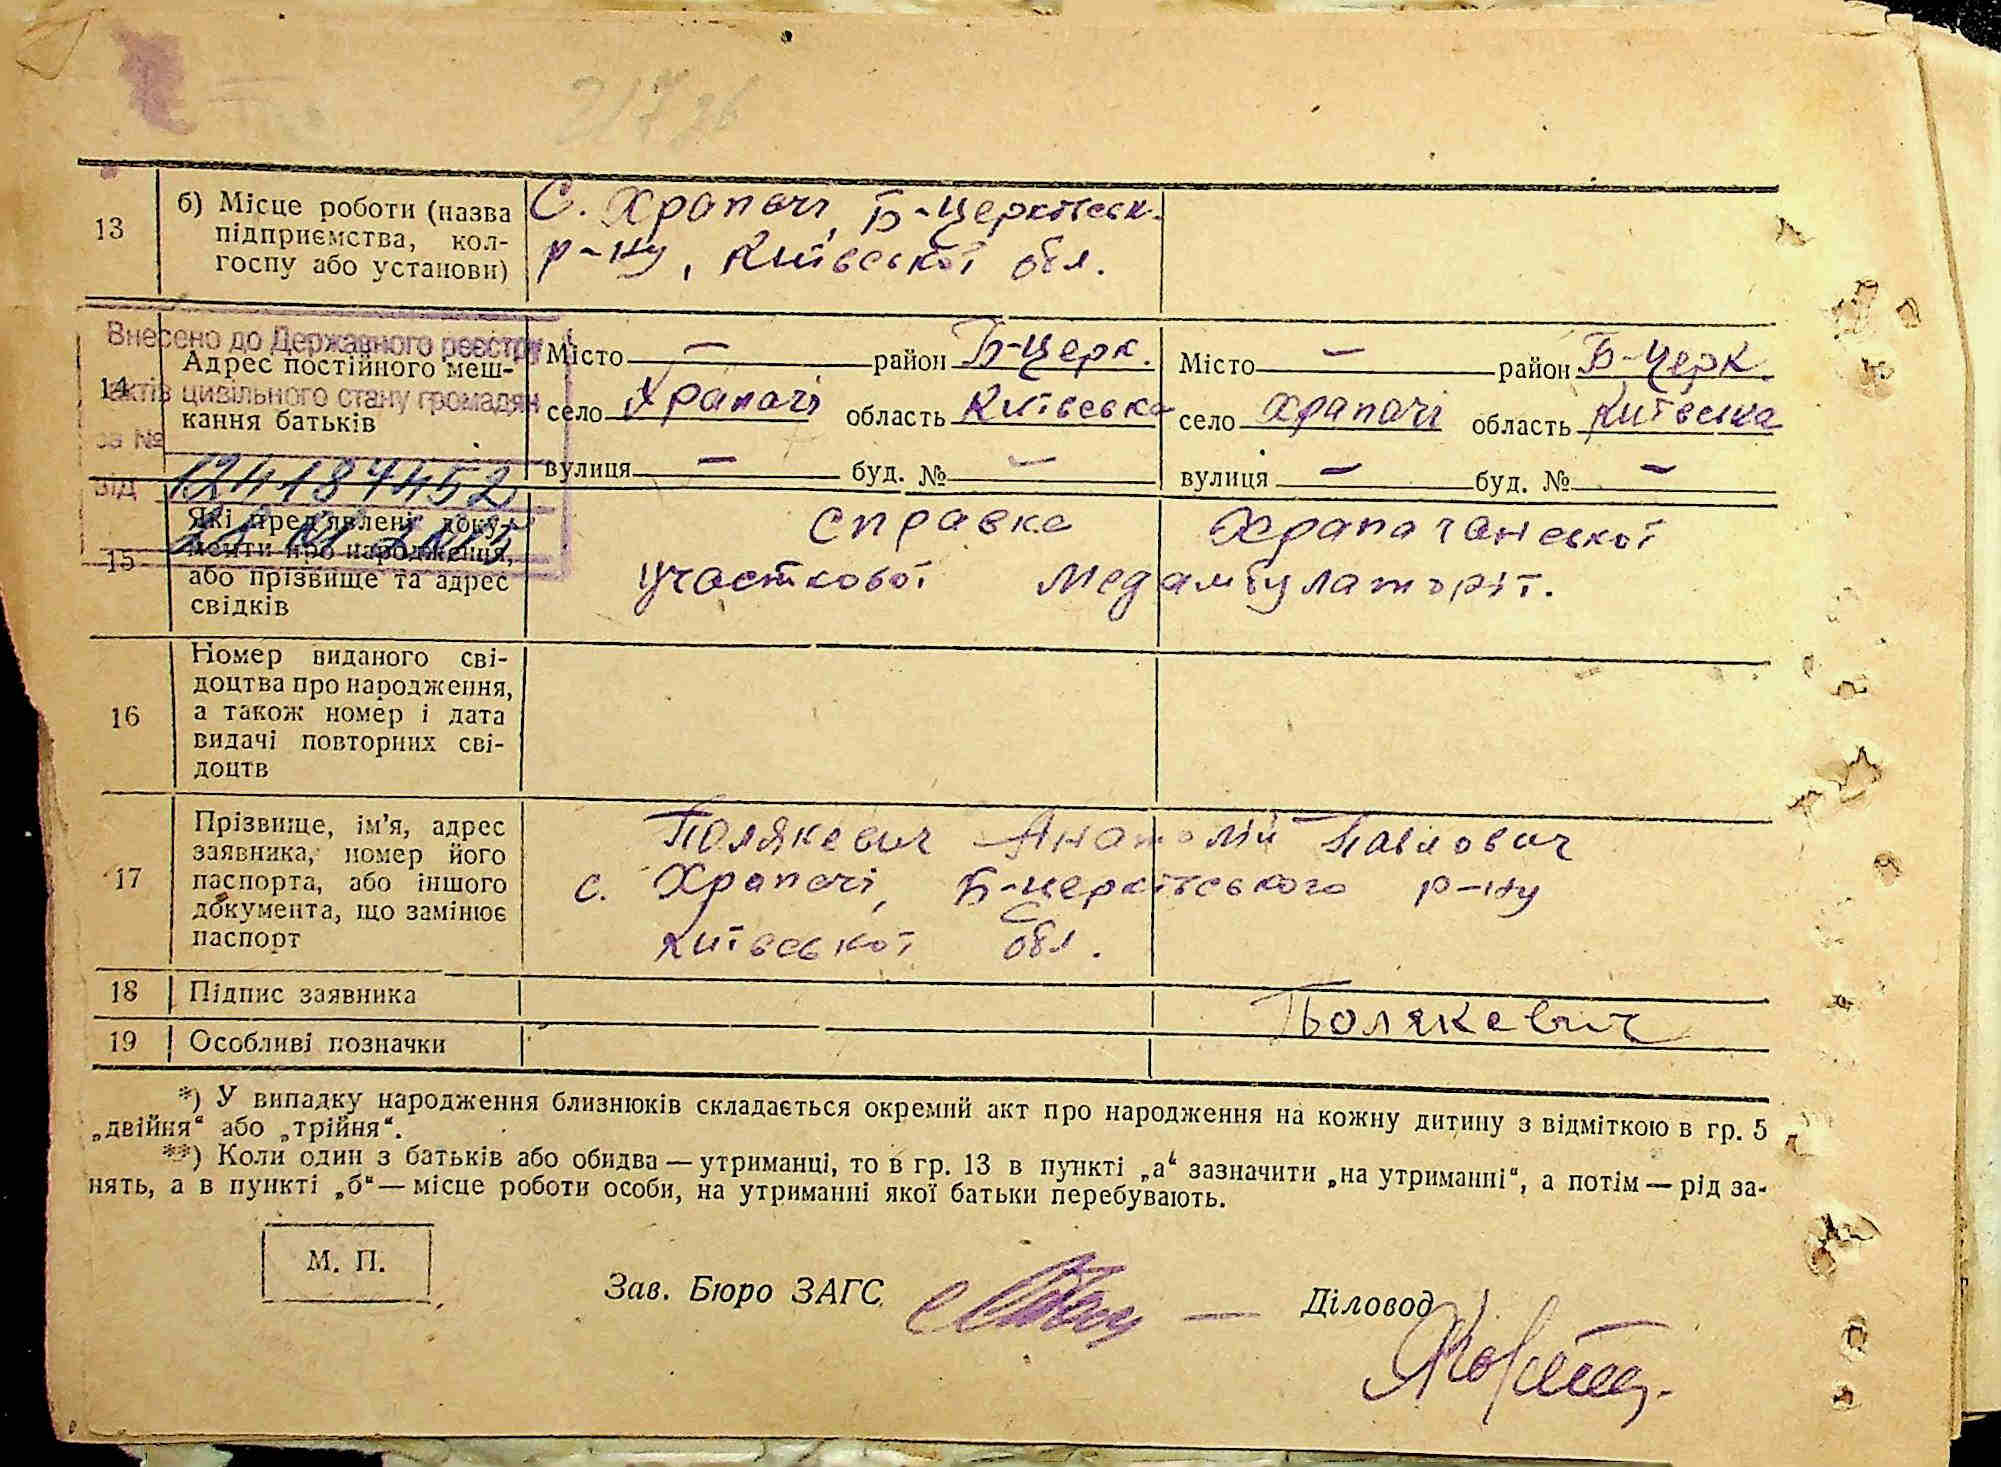 13
б) Місце роботи (назва
підприємства, кол-
госпу або установи)
С. Храпачі, Б-Церківськ.
р-ну, Київської обл.
Внесено до Державного реєстру
актів цивільного стану громадян
за №
124187452
від
14
Адрес постійного меш-
кання батьків
Місто — район Б-Церк.
село Храпачі область Київська
вулиця — буд. № —
Місто — район Б-Церк.
село Храпачі область Київська
вулиця — буд. № —
15
Які пред'явлені доку-
менти про народження,
або прізвище та адрес
свідків
справка Храпачанської
участкової медамбулаторії.
16
Номер виданого сві-
доцтва про народження,
а також номер і дата
видачі повторних сві-
доцтв
17
Прізвище, ім'я, адрес
заявника, номер його
паспорта, або іншого
документа, що замінює
паспорт
Полякевич Анатолій Павлович
с. Храпачі, Б-церківського р-ну
Київської обл.
18
Підпис заявника
Полякевич
19
Особливі позначки
*) У випадку народження близнюків складається окремий акт про народження на кожну дитину з відміткою в гр. 5
„двійня“ або „трійня“.
**) Коли один з батьків або обидва — утриманці, то в гр. 13 в пункті „а“ зазначити „на утриманні“, а потім — рід за-
нять, а в пункті „б“ — місце роботи особи, на утриманні якої батьки перебувають.
М. П.
Зав. Бюро ЗАГС
Діловод